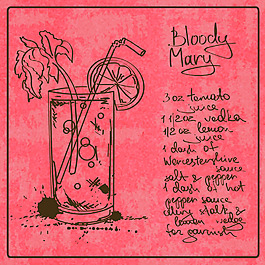 Bloody
Mary
3 oz tomato
juice
1 1/2 oz vodka
1/2 oz lemon
juice
1 dash of
Worcestershire
sauce
salt & pepper
1 dash of hot
pepper sauce
celery stalk &
lemon wedge
for garnish